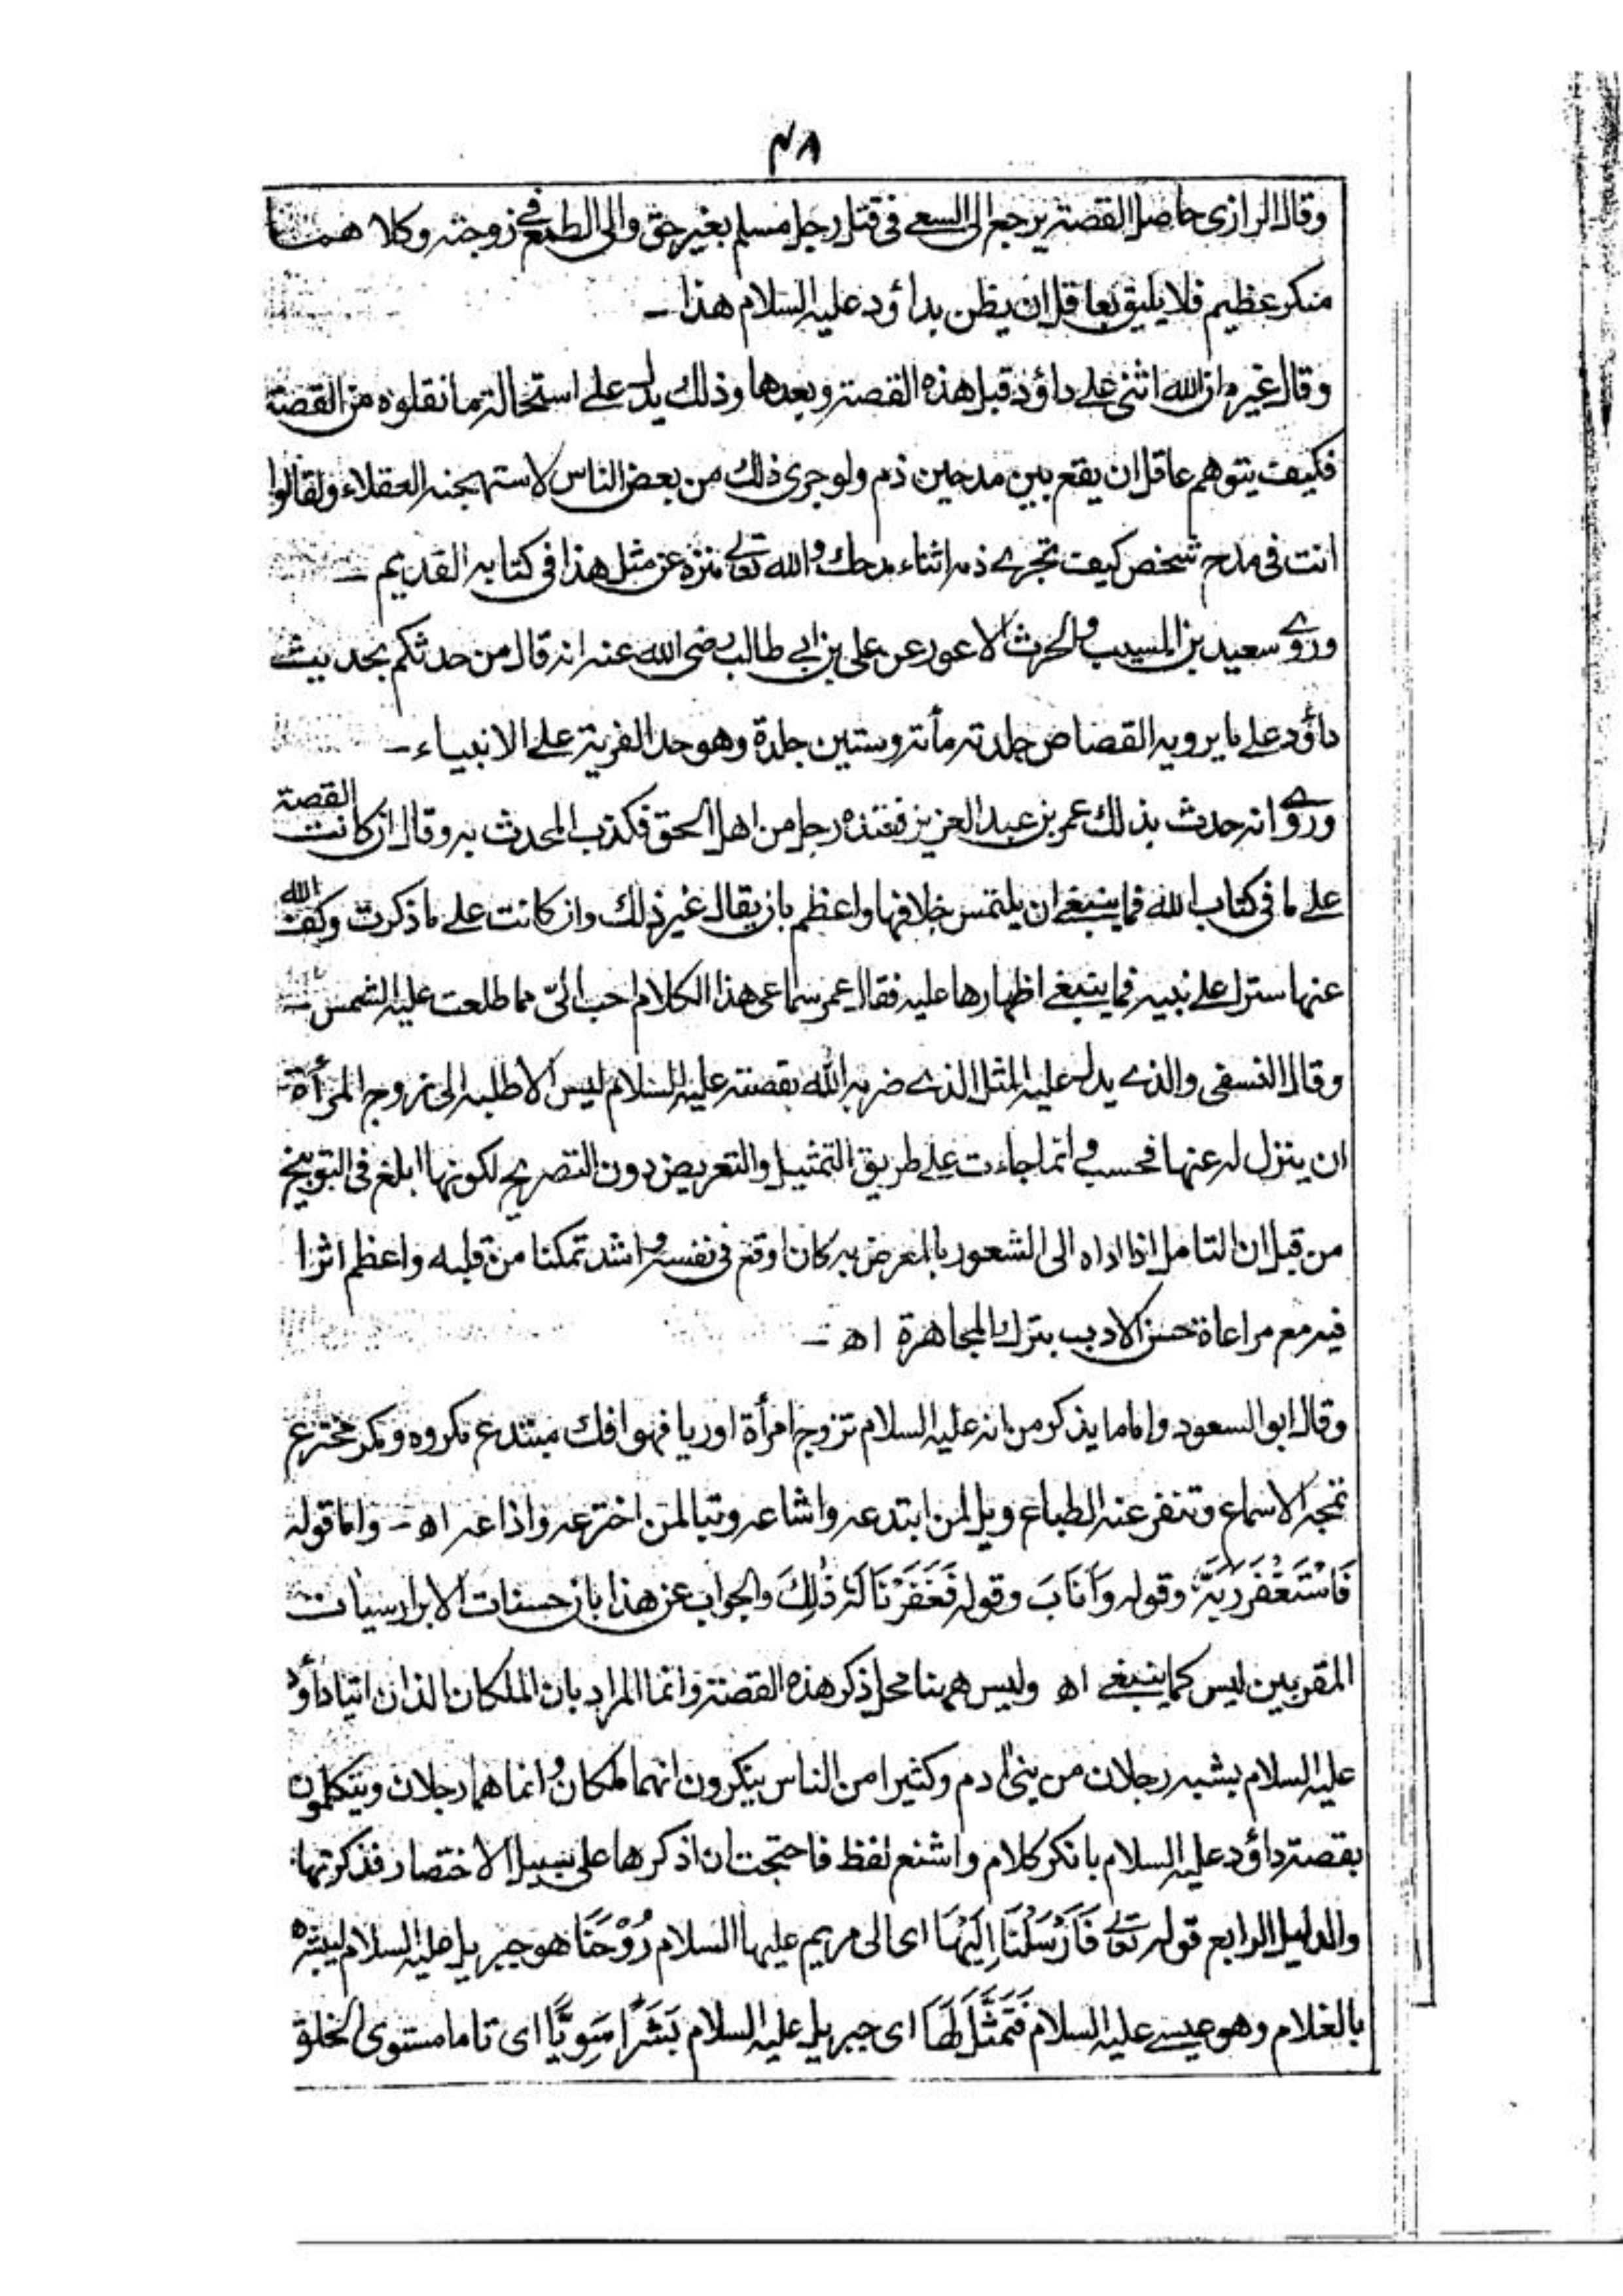 ۴۸
وقال الرازى حاصل القصة يرجع الى السعى فى قتل رجل مسلم بغير حق والى الطمع فى زوجته وكلا هما
منكر عظيم فلا يليق بعاقل ان يظن بداؤد عليه السلام هذا ـ
وقال غيره ان الله اثنى على داؤد قبل هذه القصة وبعدها وذلك يدل على استحالة ما نقلوه من القصة
فكيف يتوهم عاقل ان يقع بين مدحين ذم ولو جرى ذلك من بعض الناس لاستهجنه العقلاء ولقالوا
انت فى مدح شخص كيف تجرى ذمه اثناء مدحك والله تعالى منزه عن مثل هذا فى كتابه القديم ـ
وروى سعيد بن المسيب والحرث الاعور عن على بن ابى طالب رضى الله عنه انه قال من حدثكم بحديث
داؤد على ما يرويه القصاص جلدته مأتة وستين جلدة وهو حد الفرية على الانبياء ـ
وروى انه حدث بذلك عمر بن عبد العزيز فعنده رجل من اهل الحق فكذب المحدث به وقال ان كانت القصة
على ما فى كتاب الله فما ينبغى ان يلتمس خلافها واعظم بان يقال غير ذلك وان كانت على ما ذكرت وكف الله
عنها سترا على نبيه فما ينبغى اظهارها عليه فقال عمر سماعى هذا الكلام احب الىّ مما طلعت عليه الشمس ـ
وقال النسفى والذى يدل عليه المثل الذى ضربه الله بقصته عليه السلام ليس الا طلبه الى زوج المرأة
ان ينزل له عنها فحسب وانما جاءت على طريق التمثيل والتعريض دون التصريح لكونها ابلغ فى التوبيخ
من قبل ان التامل اذا اداه الى الشعور بالمعرض به كان اوقع فى نفسه واشد تمكنا من قلبه واعظم اثرا
فيه مع مراعاة حسن الادب بترك المجاهرة اه ـ
وقال ابو السعود واما ما يذكر من انه عليه السلام تزوج امرأة اوريا فهو افك مبتدع مكروه ومكر مخترع
تمجه الاسماع وتنفر عنه الطباع ويل لمن ابتدعه واشاعه وتبا لمن اخترعه واذاعه اه ـ واما قوله
فَاسْتَغْفَرَ رَبَّهٗ وقوله وَاَنَابَ وقوله فَغَفَرْنَا لَهٗ ذٰلِكَ والجواب عن هذا بان حسنات الابرار سيات
المقربين ليس كما ينبغى اه وليس ههنا محل ذكر هذه القصة وانما المراد بان الملكان الذان اتيا داؤد
عليه السلام بشبه رجلان من بنى ادم وكثيرا من الناس ينكرون انهما ملكان وانما هما رجلان ويتكلمون
بقصة داؤد عليه السلام بانكر كلام واشنع لفظ فاحتجت ان اذكرها على سبيل الاختصار فذكرتها
والدليل الرابع قوله تعالى فَاَرْسَلْنَا اِلَيْهَا اى الى مريم عليها السلام رُوْحَنَا هو جبريل عليه السلام ليبشره
بالغلام وهو عيسى عليه السلام فَتَمَثَّلَ لَهَا اى جبريل عليه السلام بَشَرًا سَوِيًّا اى تاما مستوى الخلق